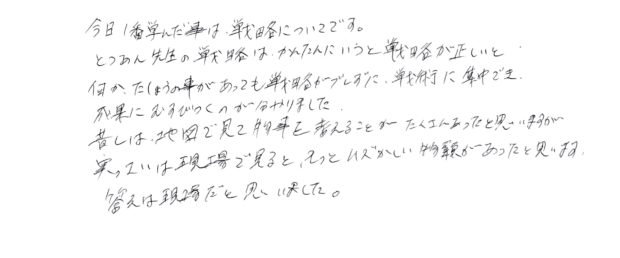 今日1番学んだ事は、戦略についてです。
とつあん先生の戦略は、かんたんにいうと戦略が正しいと
何か、たしょうの事があっても戦略がブレずに、戦術に集中でき、
成果にむすびつくのが分かりました。
昔しは、地図で見て物事を考えることがたくさんあったと思いますが
実っさいは現場で見ると、もっとムズかしい物があったと思います。
答えは現場だと思いました。